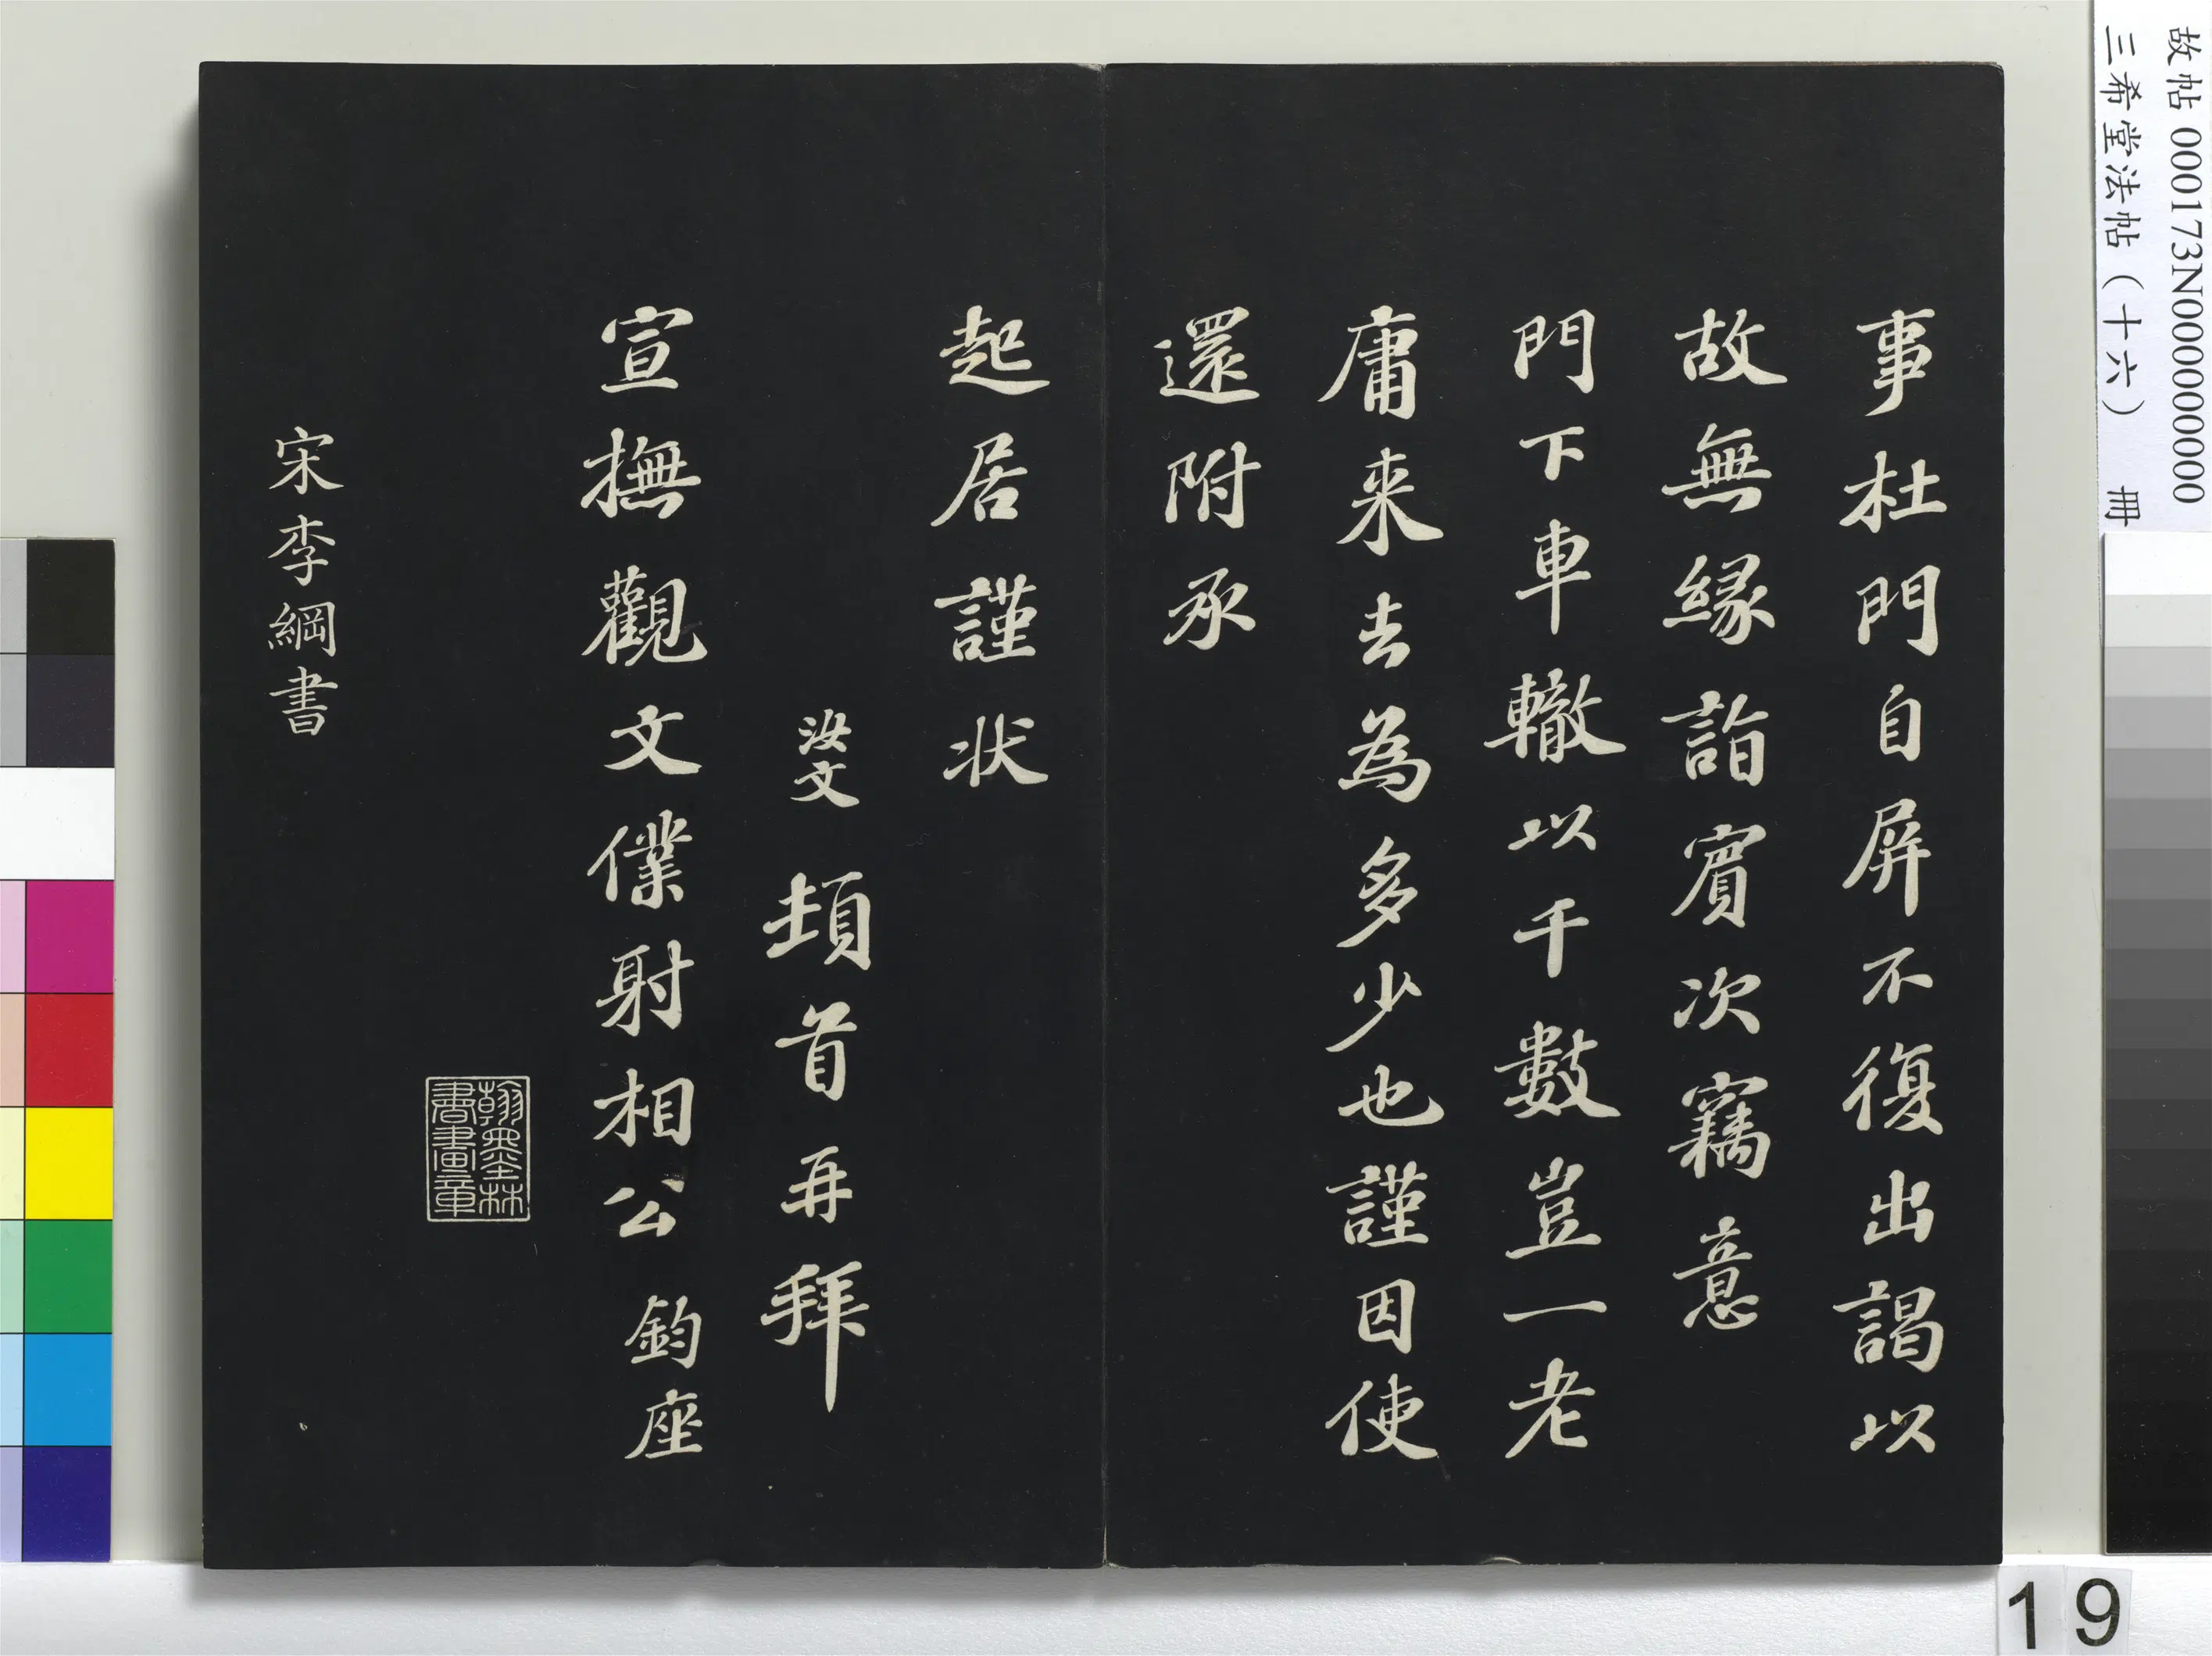 事杜門自屏不復出謁以
故無緣詣賓次竊意
門下車轍以千數豈一老
庸来去為多少也謹因使
還附承
起居謹状
汝文頓首再拜
宣撫觀文僕射相公 鈞座
翰墨林
書畫章
宋李綱書
故帖 000173N000000000
三希堂法帖（十六） 冊
19